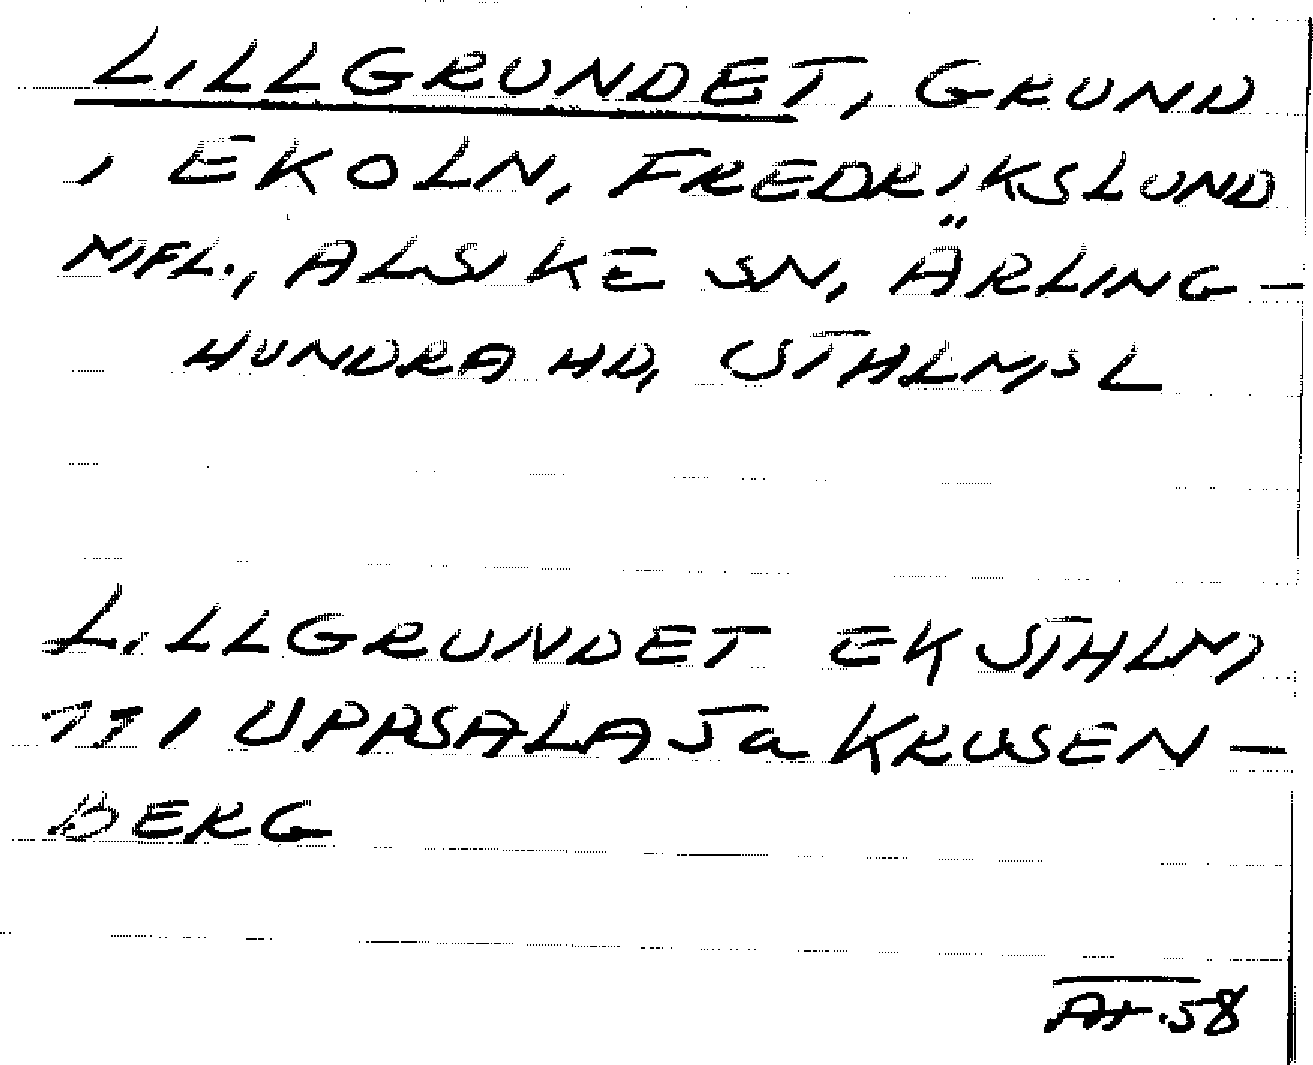 LILLGRUNDET, GRUND
I EKOLN, FREDRIKSLUND
MFL., ALSIKE SN, ÄRLING-
HUNDRA HD, STHLMSL
LILLGRUNDET EK STHLM
111 UPPSALA Ja KRUSEN-
BERG
58